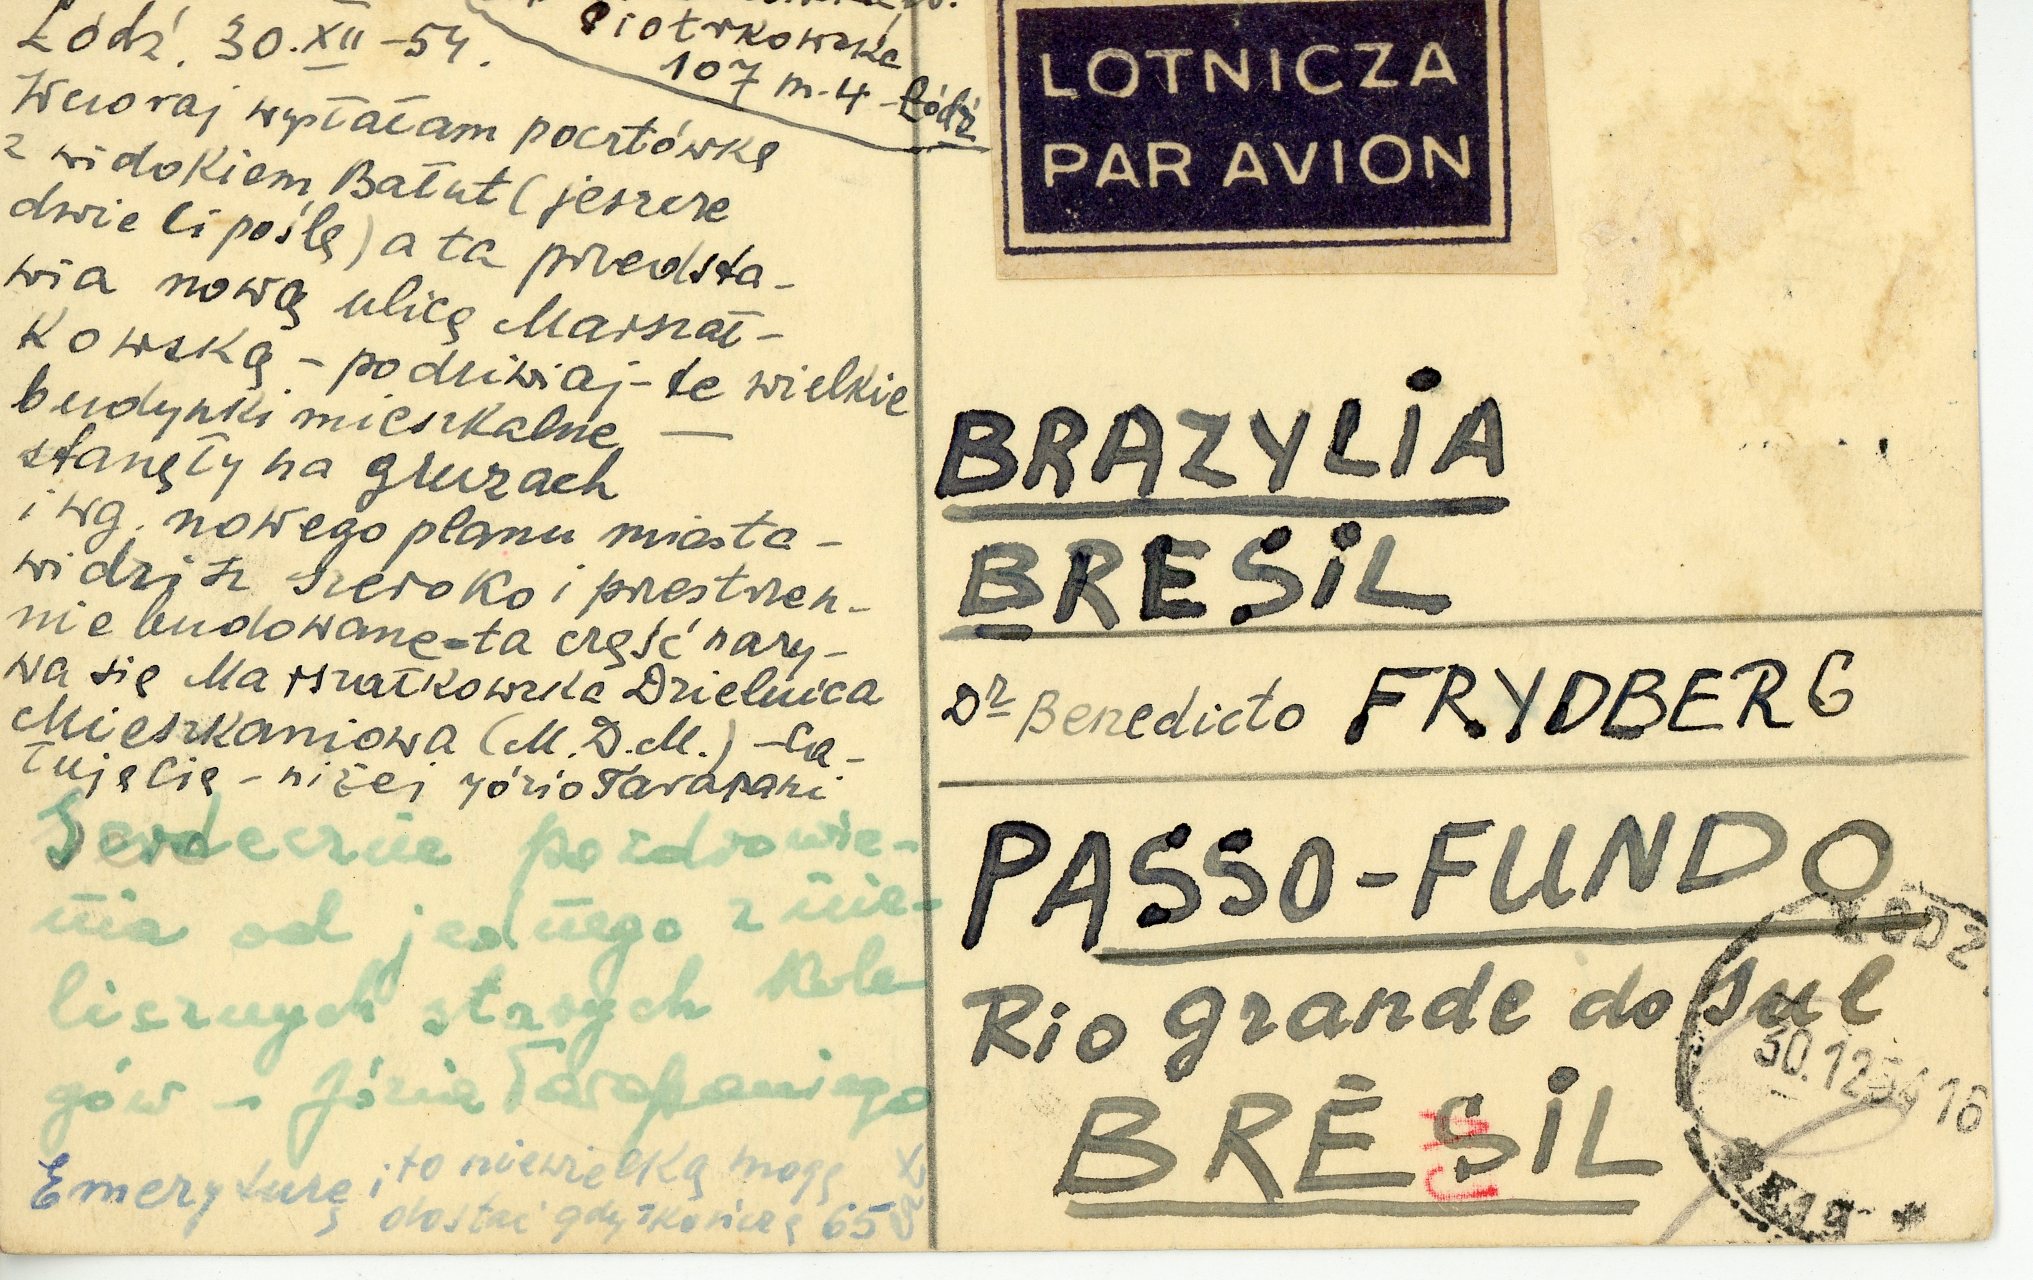 Piotrkowska
107 m-4 Łódź
Łódź, 30.XII-54.
Wczoraj wysłałam pocztówkę
z widokiem Bałut (jeszcze
dwie Ci poślę) a ta przedsta-
wia nową ulicę Marszał-
kowską - podziwiaj - te wielkie
budynki mieszkalne —
stanęły na gruzach
i wg. nowego planu miasta -
widzisz szeroko i przestrzen-
nie budowane - ta część nazy-
wa się Marszałkowska Dzielnica
Mieszkaniowa (M.D.M.) - Ca-
łuję Cię - niżej Józio Tarapani
Serdeczne pozdrowie-
nia od jednego z nie-
licznych starych kole-
gów - Józia Tarapaniego
Emeryturę i to niewielką mogę
dostać gdy skończę 65
LOTNICZA
PAR AVION
BRAZYLIA
BRESIL
Dr Benedicto FRYDBERG
PASSO-FUNDO
Rio grande do sul
BRÉSIL
ŁÓDŹ
30.12.54 16